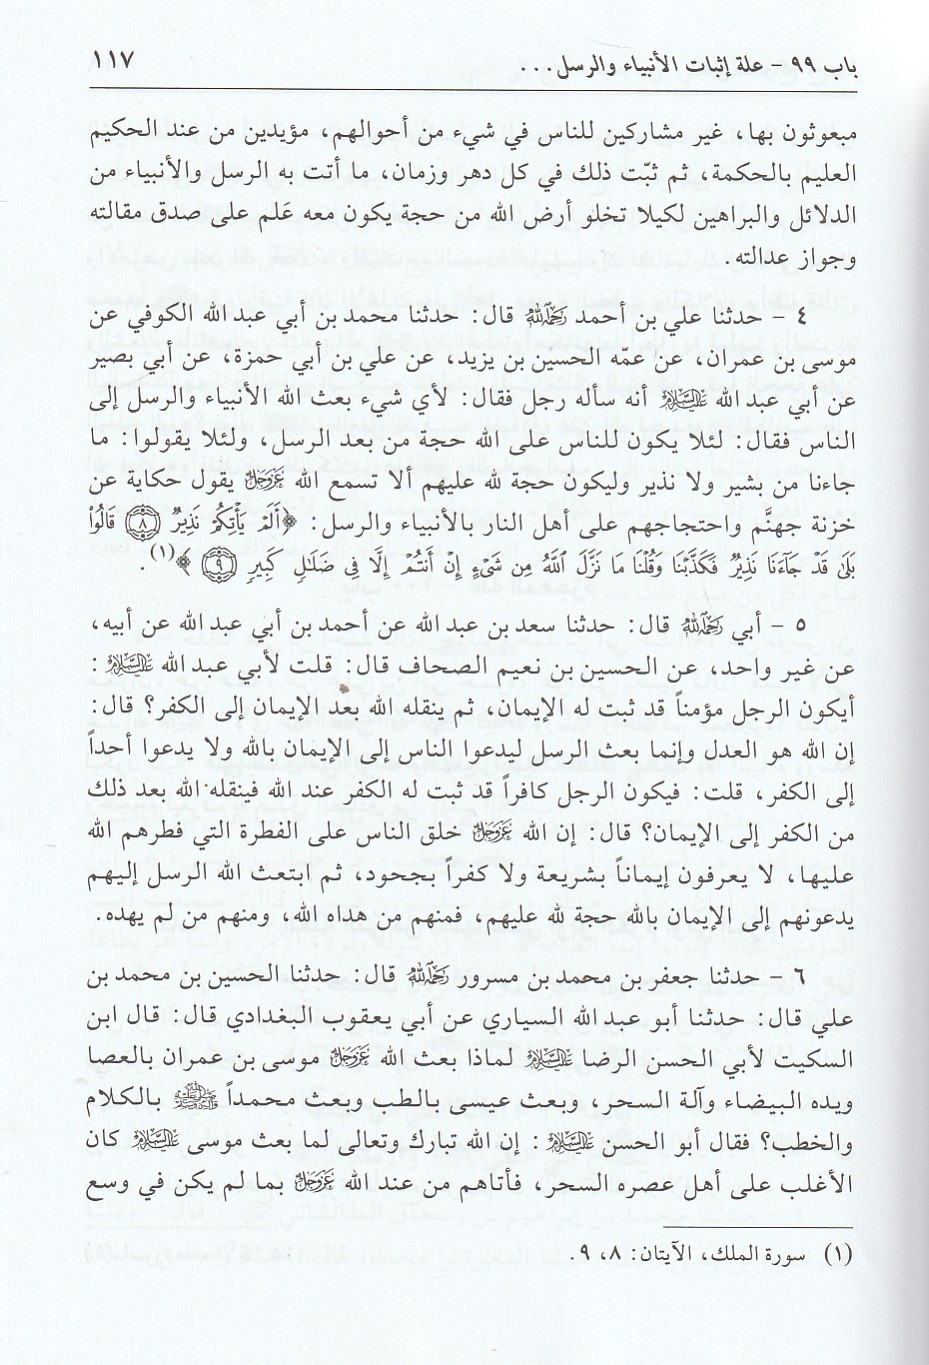 باب ٩٩ - علة إثبات الأنبياء والرسل . . . ١١٧
مبعوثون بها، غير مشاركين للناس في شيء من أحوالهم، مؤيدين من عند الحكيم
العليم بالحكمة، ثم ثبّت ذلك في كل دهر وزمان، ما أتت به الرسل والأنبياء من
الدلائل والبراهين لكيلا تخلو أرض الله من حجة يكون معه عَلم على صدق مقالته
وجواز عدالته.
٤ - حدثنا علي بن أحمد رحمه الله قال: حدثنا محمد بن أبي عبد الله الكوفي عن
موسى بن عمران، عن عمّه الحسين بن يزيد، عن علي بن أبي حمزة، عن أبي بصير
عن أبي عبد الله عليه السلام أنه سأله رجل فقال: لأي شيء بعث الله الأنبياء والرسل إلى
الناس فقال: لئلا يكون للناس على الله حجة من بعد الرسل، ولئلا يقولوا: ما
جاءنا من بشير ولا نذير وليكون حجة لله عليهم ألا تسمع الله عز وجل يقول حكاية عن
خزنة جهنَّم واحتجاجهم على أهل النار بالأنبياء والرسل: ﴿أَلَمْ يَأْتِكُمْ نَذِيرٌ ٨ قَالُوا۟
بَلَىٰ قَدْ جَآءَنَا نَذِيرٌ فَكَذَّبْنَا وَقُلْنَا مَا نَزَّلَ ٱللَّهُ مِن شَىْءٍ إِنْ أَنتُمْ إِلَّا فِى ضَلَـٰلٍ كَبِيرٍ ٩﴾(١).
٥ - أبي رحمه الله قال: حدثنا سعد بن عبد الله عن أحمد بن أبي عبد الله عن أبيه،
عن غير واحد، عن الحسين بن نعيم الصحاف قال: قلت لأبي عبد الله عليه السلام:
أيكون الرجل مؤمناً قد ثبت له الإيمان، ثم ينقله الله بعد الإيمان إلى الكفر؟ قال:
إن الله هو العدل وإنما بعث الرسل ليدعوا الناس إلى الإيمان بالله ولا يدعوا أحداً
إلى الكفر، قلت: فيكون الرجل كافراً قد ثبت له الكفر عند الله فينقله الله بعد ذلك
من الكفر إلى الإيمان؟ قال: إن الله عز وجل خلق الناس على الفطرة التي فطرهم الله
عليها، لا يعرفون إيماناً بشريعة ولا كفراً بجحود، ثم ابتعث الله الرسل إليهم
يدعونهم إلى الإيمان بالله حجة لله عليهم، فمنهم من هداه الله، ومنهم من لم يهده.
٦ - حدثنا جعفر بن محمد بن مسرور رحمه الله قال: حدثنا الحسين بن محمد بن
علي قال: حدثنا أبو عبد الله السياري عن أبي يعقوب البغدادي قال: قال ابن
السكيت لأبي الحسن الرضا عليه السلام لماذا بعث الله عز وجل موسى بن عمران بالعصا
ويده البيضاء وآلة السحر، وبعث عيسى بالطب وبعث محمداً صلى الله عليه وآله وسلم بالكلام
والخطب؟ فقال أبو الحسن عليه السلام: إن الله تبارك وتعالى لما بعث موسى عليه السلام كان
الأغلب على أهل عصره السحر، فأتاهم من عند الله عز وجل بما لم يكن في وسع
(١) سورة الملك، الآيتان: ٨، ٩.